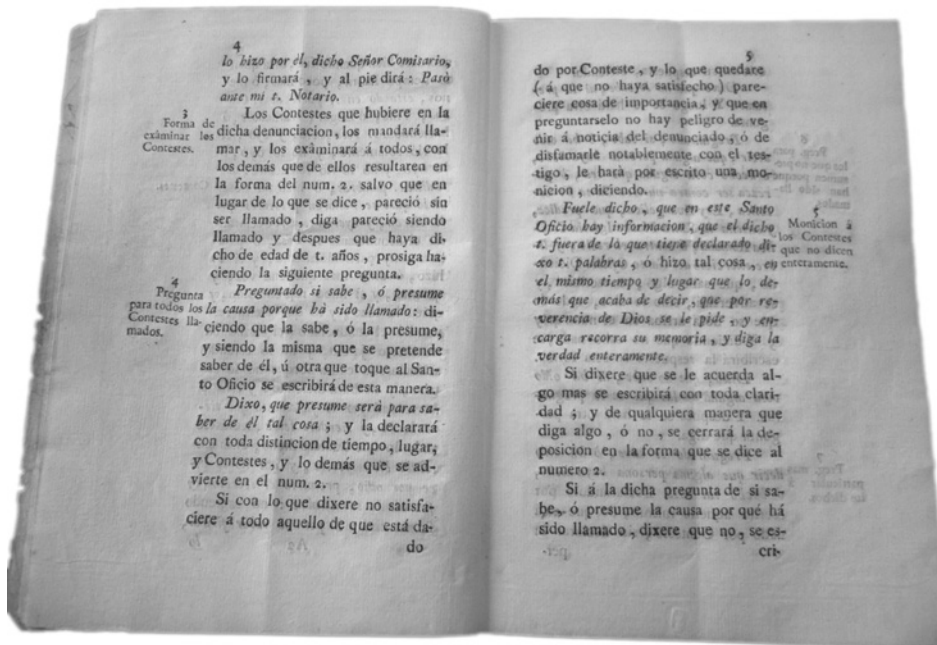 4
lo hizo por él, dicho Señor Comisario,
y lo firmará , y al pie dirá : Pasò
ante mi t. Notario.
3
Forma de
exâminar los
Contestes.
Los Contestes que hubiere en la
dicha denunciacion, los mandará lla-
mar , y los exâminará á todos, con
los demás que de ellos resultaren en
la forma del num. 2. salvo que en
lugar de lo que se dice , pareció sin
ser llamado , diga pareció siendo
llamado y despues que haya di-
cho de edad de t. años , prosiga ha-
ciendo la siguiente pregunta.
4
Pregunta
para todos los
Contestes lla-
mados.
Preguntado si sabe , ó presume
la causa porque há sido llamado: di-
ciendo que la sabe , ó la presume,
y siendo la misma que se pretende
saber de él, ú otra que toque al San-
to Oficio se escribirá de esta manera.
Dixo, que presume será para sa-
ber de él tal cosa ; y la declarará
con toda distincion de tiempo, lugar,
y Contestes , y lo demás que se ad-
vierte en el num. 2.
Si con lo que dixere no satisfa-
ciere á todo aquello de que está da-
do
5
do por Conteste , y lo que quedare
( á que no haya satisfecho ) pare-
ciere cosa de importancia, y que en
preguntarselo no hay peligro de ve-
nir á noticia del denunciado , ó de
disfamarle notablemente con el tes-
tigo , le hará por escrito una mo-
nicion , diciendo.
Fuele dicho , que en este Santo
Oficio hay informacion , que el dicho
t. fuera de lo que tiene declarado di-
xo t. palabras , ó hizo tal cosa , en
el mismo tiempo y lugar que lo de-
más que acaba de decir , que por re-
verencia de Dios se le pide , y en-
carga recorra su memoria , y diga la
verdad enteramente.
5
Monicion á
los Contestes
que no dicen
enteramente.
Si dixere que se le acuerda al-
go mas se escribirá con toda clari-
dad ; y de qualquiera manera que
diga algo , ó no , se cerrará la de-
posicion en la forma que se dice al
numero 2.
Si á la dicha pregunta de si sa-
be, ó presume la causa por qué há
sido llamado , dixere que no , se es-
cri-